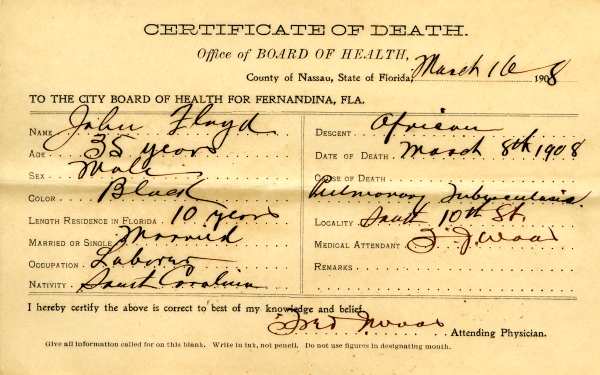 CERTIFICATE OF DEATH.
Office of BOARD OF HEALTH,
County of Nassau, State of Florida, March 16 1908
TO THE CITY BOARD OF HEALTH FOR FERNANDINA, FLA.
NAME John Floyd
AGE 35 years
SEX Male
COLOR Black
LENGTH RESIDENCE IN FLORIDA 10 years
MARRIED OR SINGLE Married
OCCUPATION Laborer
NATIVITY South Carolina
DESCENT African
DATE OF DEATH March 8th 1908
CAUSE OF DEATH
Pulmonary Tuberculosis
LOCALITY South 10th St.
MEDICAL ATTENDANT F. J. Wood
REMARKS
I hereby certify the above is correct to best of my knowledge and belief.
Fred J Wood Attending Physician.
Give all information called for on this blank. Write in ink, not pencil. Do not use figures in designating month.